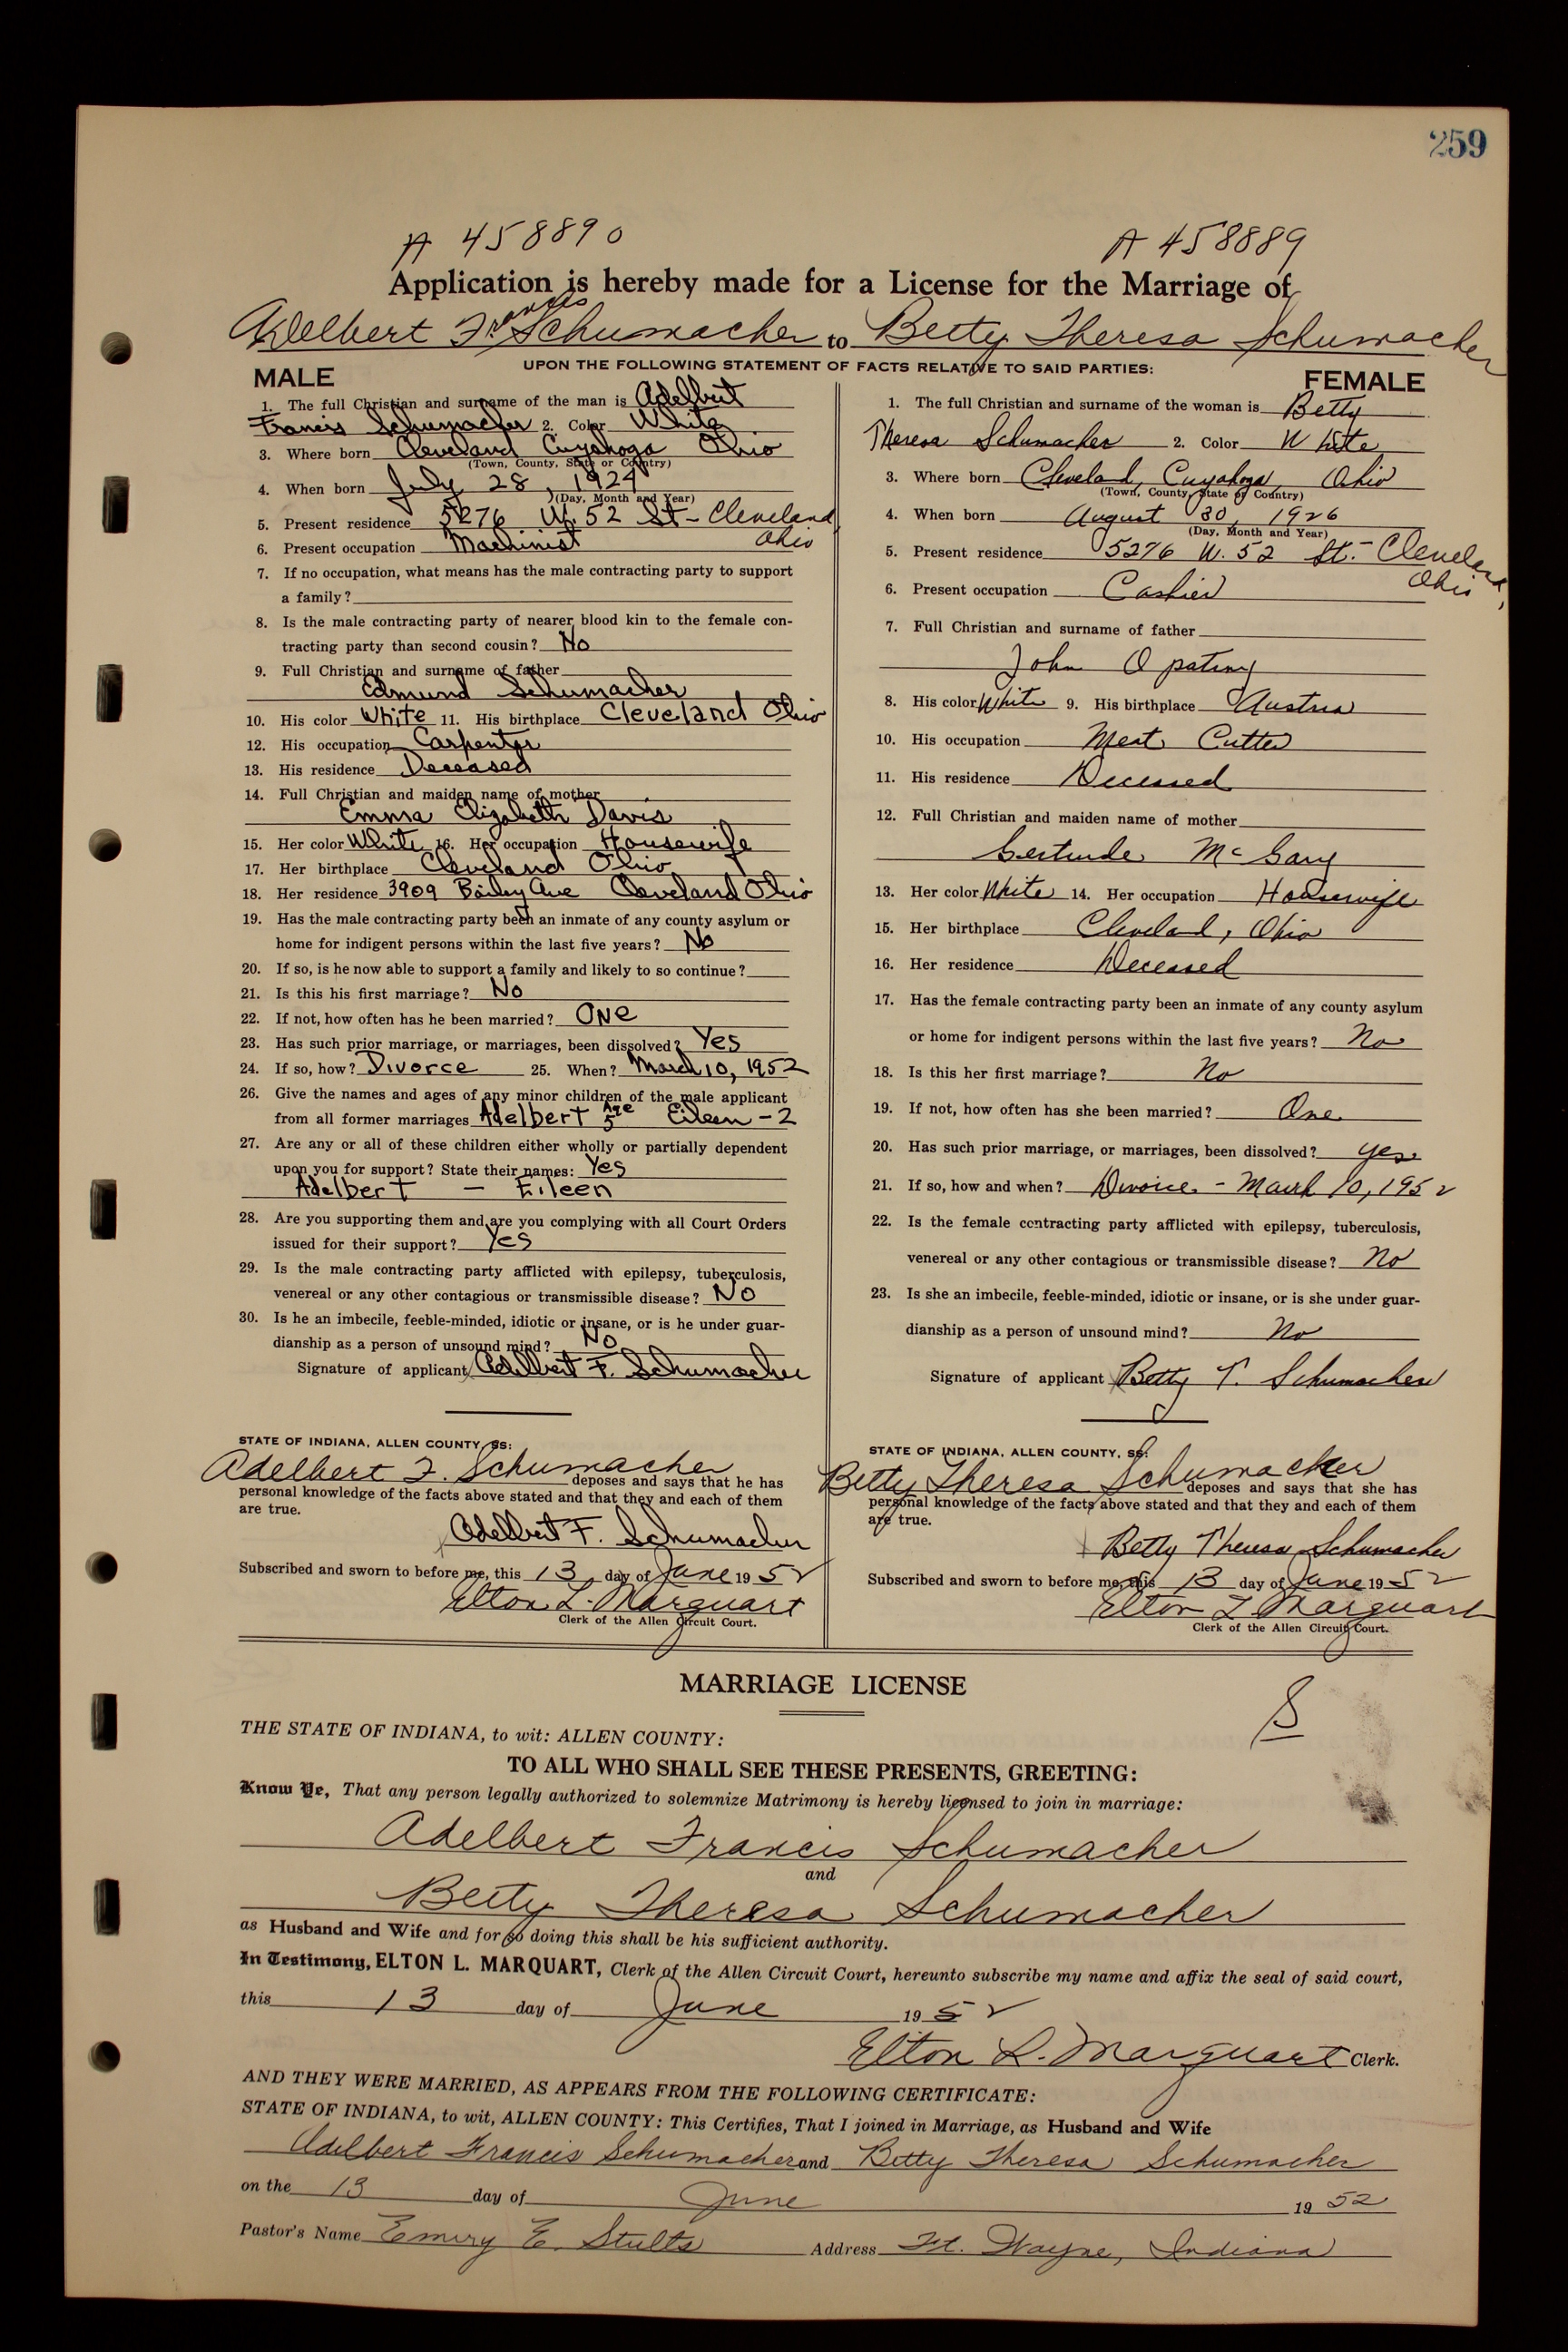 259
A 458890
A 458889
Application is hereby made for a License for the Marriage of
Adelbert Francis Schumacher to Betty Theresa Schumacher
UPON THE FOLLOWING STATEMENT OF FACTS RELATIVE TO SAID PARTIES:
MALE
1. The full Christian and surname of the man is Adelbert
Francis Schumacher 2. Color White
3. Where born Cleveland Cuyahoga Ohio
(Town, County, State or Country)
4. When born July 28, 1924
(Day, Month and Year)
5. Present residence 5276 W. 52 St - Cleveland
Ohio
6. Present occupation Machinist
7. If no occupation, what means has the male contracting party to support
a family?
8. Is the male contracting party of nearer blood kin to the female con-
tracting party than second cousin? No
9. Full Christian and surname of father
Edmund Schumacher
10. His color White 11. His birthplace Cleveland Ohio
12. His occupation Carpenter
13. His residence Deceased
14. Full Christian and maiden name of mother
Emma Elizabeth Davis
15. Her color White 16. Her occupation Housewife
17. Her birthplace Cleveland Ohio
18. Her residence 3909 Bailey Ave Cleveland Ohio
19. Has the male contracting party been an inmate of any county asylum or
home for indigent persons within the last five years? No
20. If so, is he now able to support a family and likely to so continue?
21. Is this his first marriage? No
22. If not, how often has he been married? ONe
23. Has such prior marriage, or marriages, been dissolved? Yes
24. If so, how? Divorce 25. When? March 10, 1952
26. Give the names and ages of any minor children of the male applicant
from all former marriages Adelbert Age 5 Eileen - 2
27. Are any or all of these children either wholly or partially dependent
upon you for support? State their names: Yes
Adelbert - Eileen
28. Are you supporting them and are you complying with all Court Orders
issued for their support? Yes
29. Is the male contracting party afflicted with epilepsy, tuberculosis,
venereal or any other contagious or transmissible disease? No
30. Is he an imbecile, feeble-minded, idiotic or insane, or is he under guar-
dianship as a person of unsound mind? No
Signature of applicant Adelbert F. Schumacher
STATE OF INDIANA, ALLEN COUNTY, SS:
Adelbert F. Schumacher deposes and says that he has
personal knowledge of the facts above stated and that they and each of them
are true.
Adelbert F. Schumacher
Subscribed and sworn to before me, this 13 day of June 19 52
Elton L. Marquart
Clerk of the Allen Circuit Court.
FEMALE
1. The full Christian and surname of the woman is Betty
Theresa Schumacher 2. Color White
3. Where born Cleveland, Cuyahoga, Ohio
(Town, County, State or Country)
4. When born August 30, 1926
(Day, Month and Year)
5. Present residence 5276 W. 52 St. - Cleveland,
Ohio
6. Present occupation Cashier
7. Full Christian and surname of father
John Opatiny
8. His color White 9. His birthplace Austria
10. His occupation Meat Cutter
11. His residence Decessed
12. Full Christian and maiden name of mother
Gertrude McGary
13. Her color White 14. Her occupation Housewife
15. Her birthplace Cleveland, Ohio
16. Her residence Deceased
17. Has the female contracting party been an inmate of any county asylum
or home for indigent persons within the last five years? No
18. Is this her first marriage? No
19. If not, how often has she been married? One
20. Has such prior marriage, or marriages, been dissolved? yes
21. If so, how and when? Divorce - March 10, 1952
22. Is the female contracting party afflicted with epilepsy, tuberculosis,
venereal or any other contagious or transmissible disease? No
23. Is she an imbecile, feeble-minded, idiotic or insane, or is she under guar-
dianship as a person of unsound mind? No
Signature of applicant Betty T. Schumacher
STATE OF INDIANA, ALLEN COUNTY, SS:
Betty Theresa Schumacker deposes and says that she has
personal knowledge of the facts above stated and that they and each of them
are true.
Betty Theresa Schumacher
Subscribed and sworn to before me, this 13 day of June 19 52
Elton L Marquart
Clerk of the Allen Circuit Court.
MARRIAGE LICENSE
THE STATE OF INDIANA, to wit: ALLEN COUNTY:
TO ALL WHO SHALL SEE THESE PRESENTS, GREETING:
Know Ye, That any person legally authorized to solemnize Matrimony is hereby licensed to join in marriage:
Adelbert Francis Schumacher
and
Betty Theresa Schumacher
as Husband and Wife and for so doing this shall be his sufficient authority.
In Testimony, ELTON L. MARQUART, Clerk of the Allen Circuit Court, hereunto subscribe my name and affix the seal of said court,
this 13 day of June 19 52
Elton L. Marquart Clerk.
AND THEY WERE MARRIED, AS APPEARS FROM THE FOLLOWING CERTIFICATE:
STATE OF INDIANA, to wit, ALLEN COUNTY: This Certifies, That I joined in Marriage, as Husband and Wife
Adelbert Francis Schumacher and Betty Theresa Schumacher
on the 13 day of June 19 52
Pastor's Name Emery E. Stults Address Ft. Wayne, Indiana